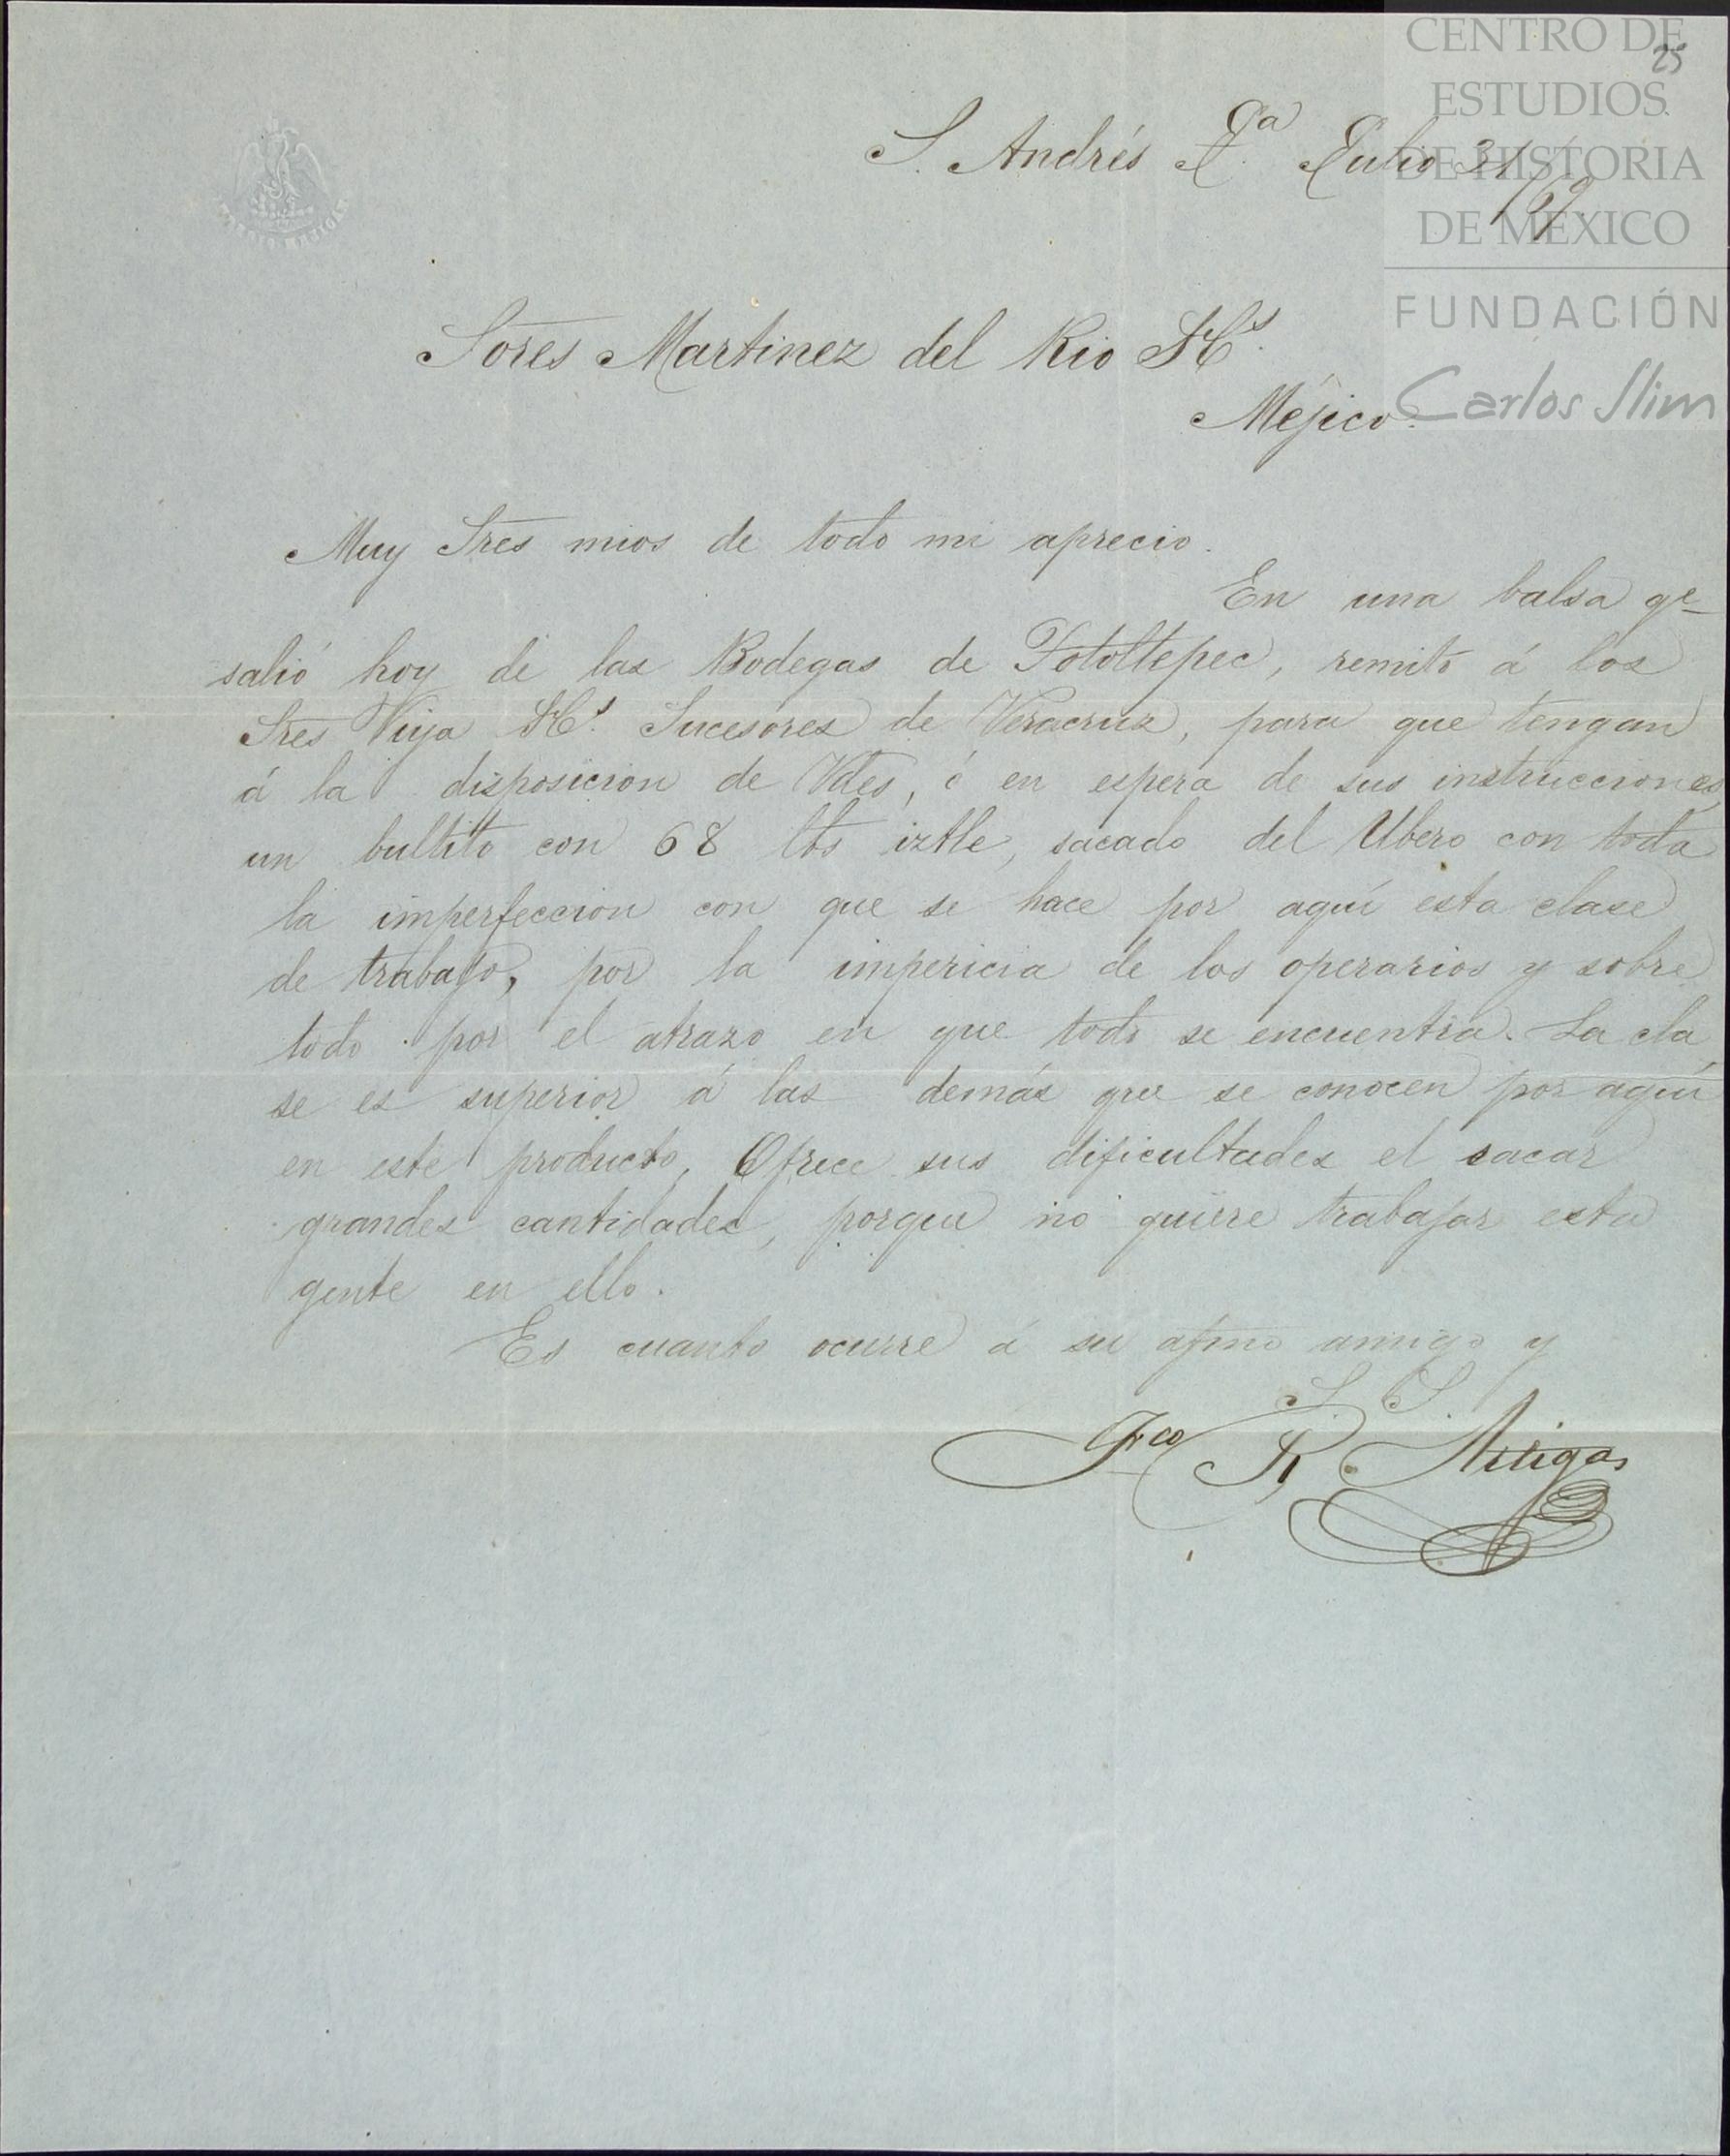 CENTRO DE
ESTUDIOS
DE HISTORIA
DE MEXICO
FUNDACIÓN
Carlos Slim
25
S. Andrés Julio 31/69
Sores Martinez del Rio Hs.
Méjico.
Muy Sres mios de todo mi aprecio.
En una balsa qe
salió hoy de las Bodegas de Totoltepec, remito á los
Sres Viya Hs. Sucesores de Veracruz, para que tengan
á la disposicion de Vdes, é en espera de sus instrucciones,
un bultito con 68 lbs iztle, sacado del Ubero con toda
la imperfeccion con que se hace por aquí esta clase
de trabajo, por la impericia de los operarios y sobre
todo por el atrazo en que todo se encuentra. La cla
se es superior á las demás que se conocen por aquí
en este producto. Ofrece sus dificultades el sacar
grandes cantidades, porque no quiere trabajar esta
gente en ello.
Es cuanto ocurre á su afmo amigo y
S. S.
Fco R. Artigas